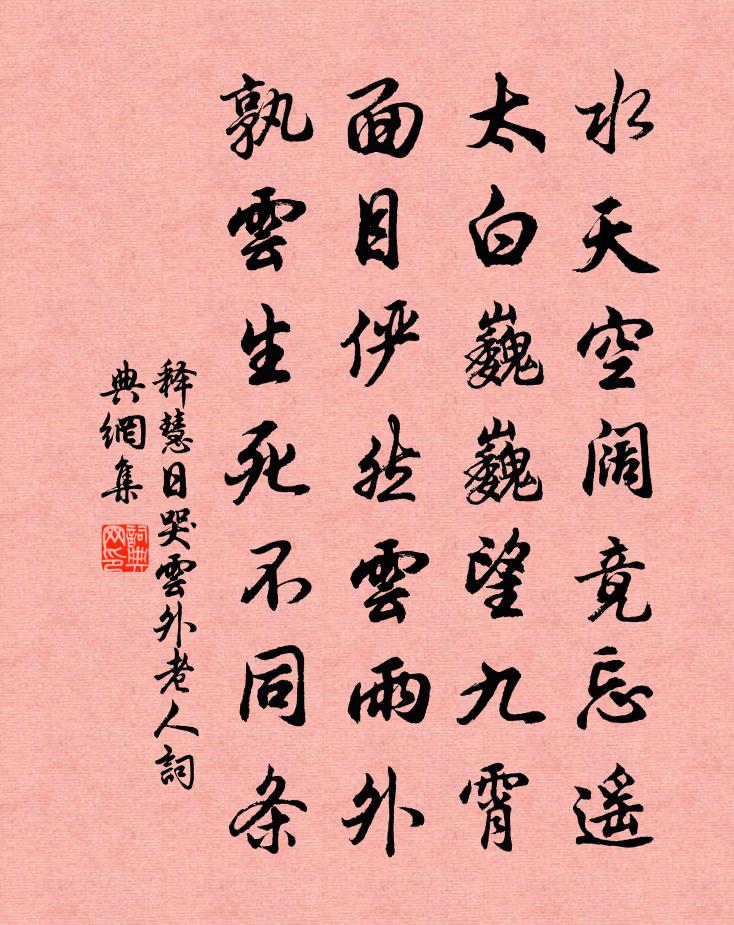 水天空阔竟忘遥
太白巍巍望九霄
面目俨然雲雨外
孰雲生死不同条
释慧日哭雲外老人詞
典網集
詞典
网印